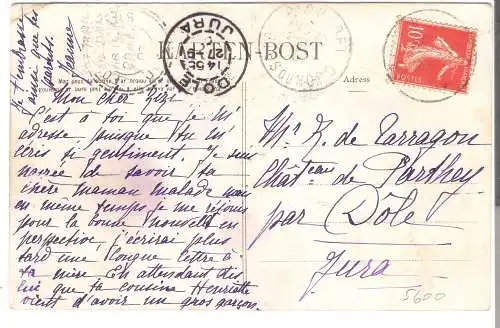 KARTEN-BOST
Adresse
DOLE
14 SEPT
JURA
10
POSTES
Je t'embrasse
ainsi que les
parents.
Jeanne
Mon cher
C'est à toi que je m'
adresse puisque tu m'
écris si gentiment. Je suis
navrée de savoir ta
chère maman malade mais
en même temps je me réjouis
pour la bonne nouvelle en
perspective, j'écrirai plus
tard une longue lettre à
ta mère. En attendant dis
lui que ta cousine Henriette
vient d'avoir un gros garçon.
Mr R. de Tarragon
Chateau de Parthey
par Dôle
Jura
5600